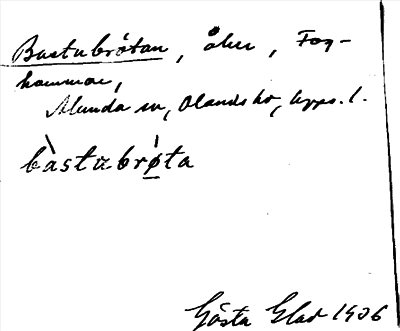 Bastubrötan, åker, Fog-
hammar,
Alunda sn, Olands hd, Upps. l.
bàstubrø̀ta
Gösta Elad 1906